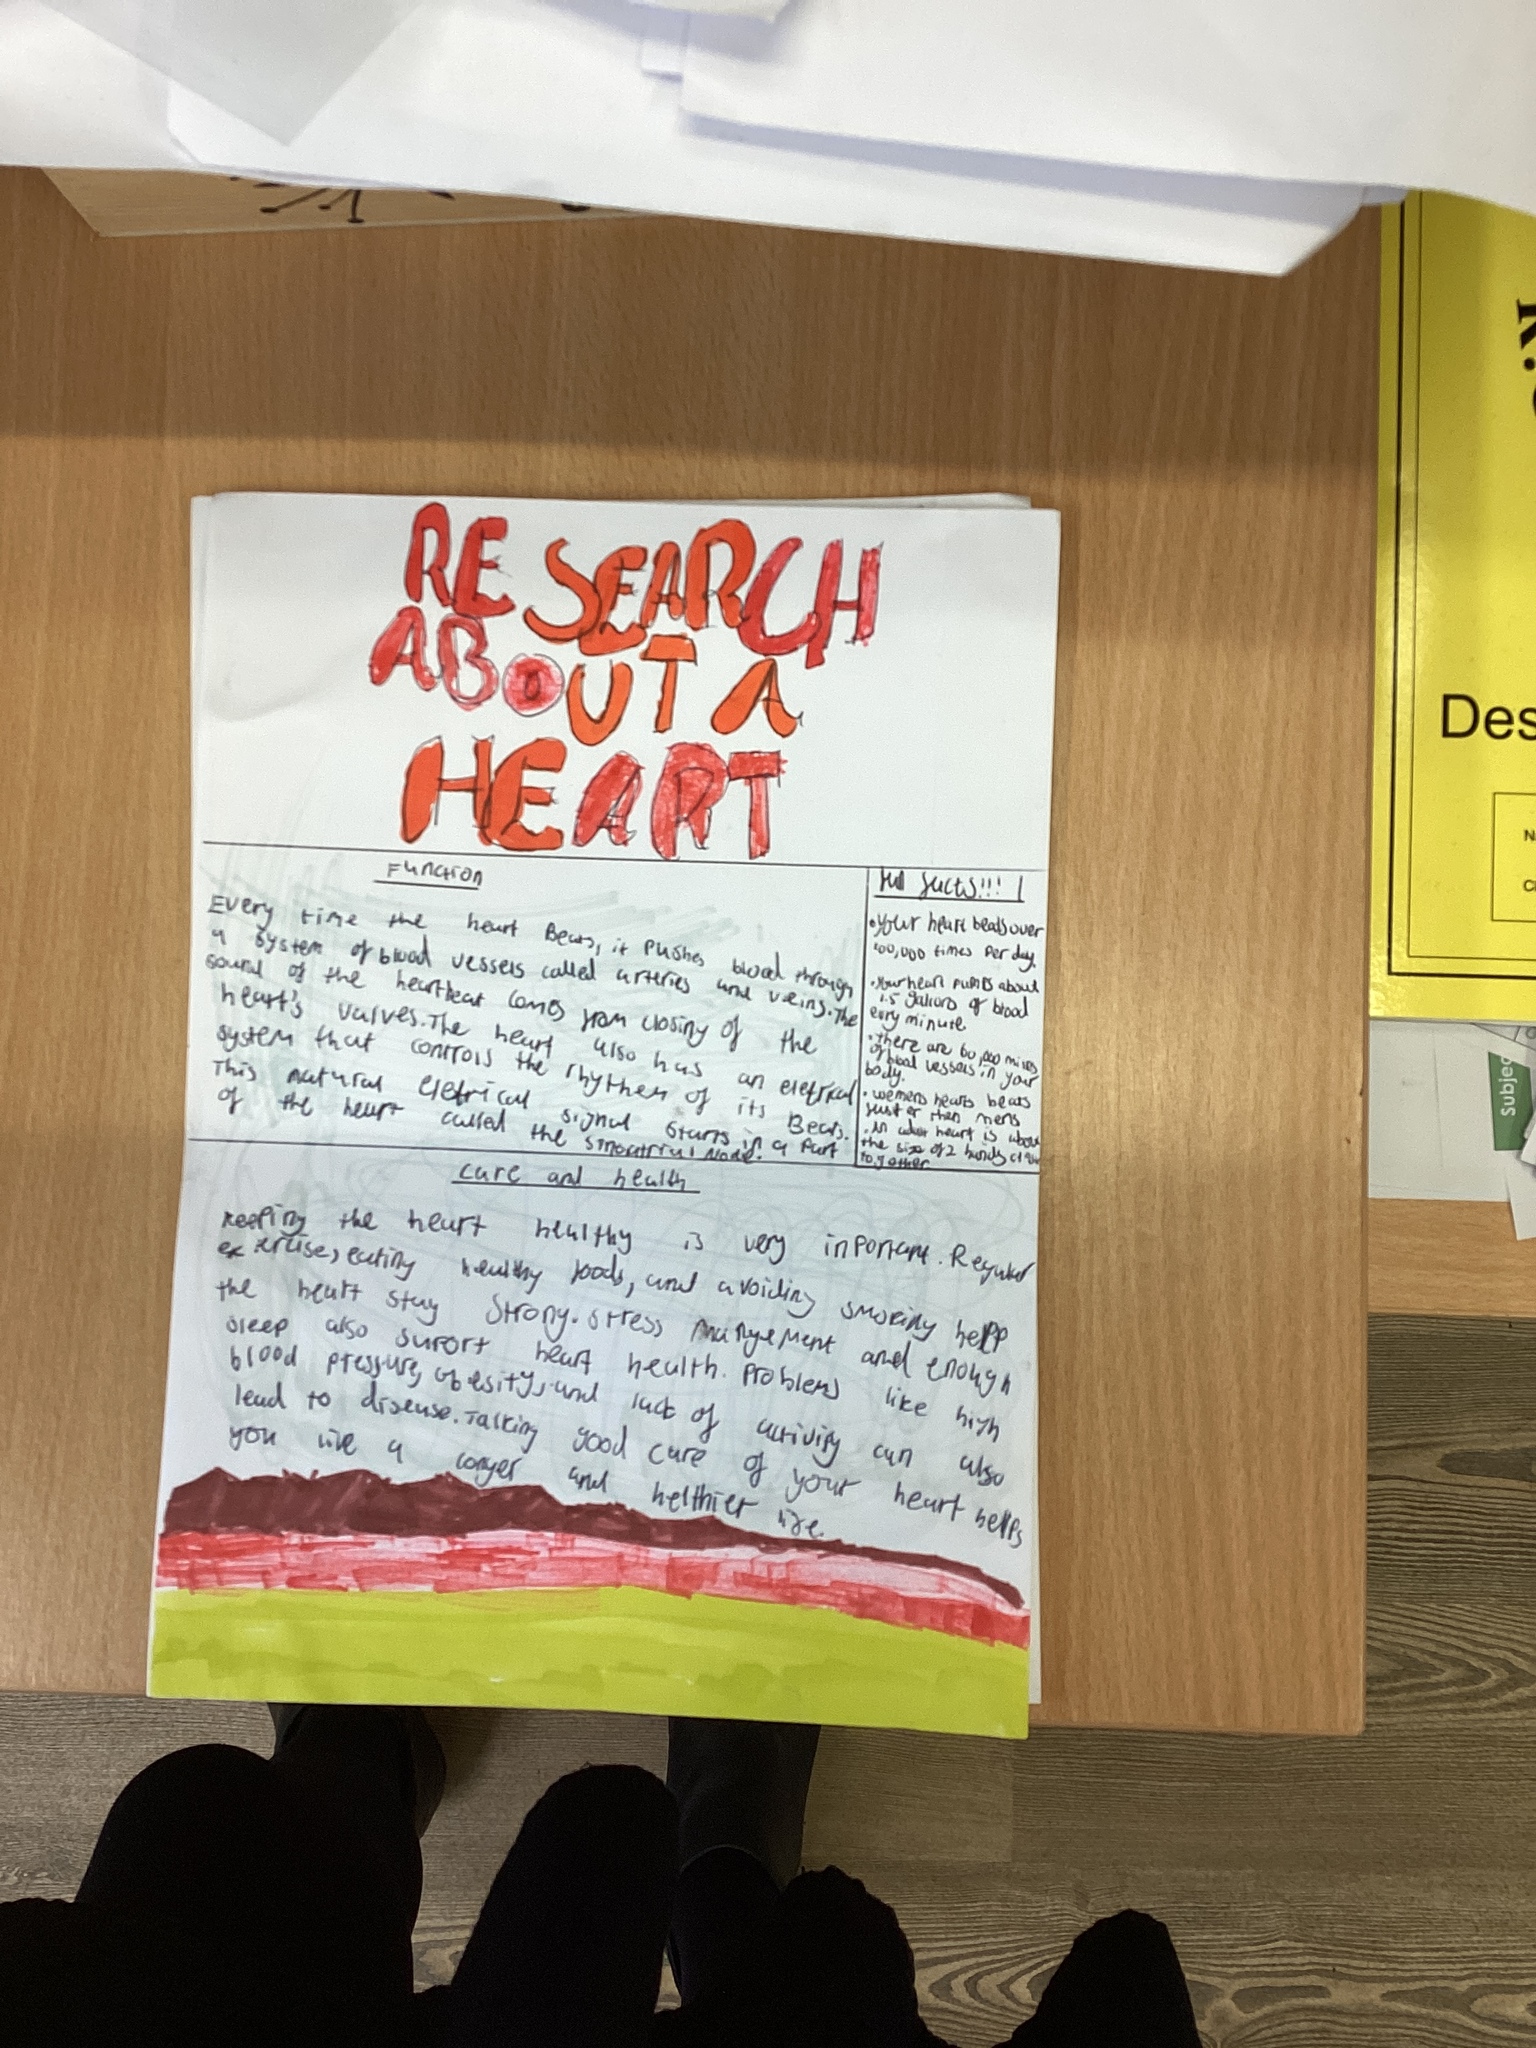 RESEARCH
ABOUT A
HEART
Function
Every time the heart Beats, it pushes blood through
a system of blood vessels called arteries and veins. The
sound of the heartbeat comes from closing of the
heart's valves. The heart also has an eletrical
system that controls the rhythem of its Beats.
This natural eletrical signal starts in a part
of the heart called the Node.
fun facts!!!
• Your heart beats over
100,000 times per day.
• Your heart pumps about
1.5 gallons of blood
every minute
• There are 60,000 miles
of blood vessels in your
body.
• womens hearts beats
faster than mens
• An adult heart is about
the size of 2 hands
together
care and health
Keeping the heart healthy is very inportant. Regular
exercise, eating healthy foods, and avoiding smoking help
the heart stay strong. Stress management and enough
sleep also suport heart health. Problems like high
blood pressure, obesity, and lack of activity can also
lead to disease. Talking good care of your heart helps
you live a longer and helthier life.
Des
subjec